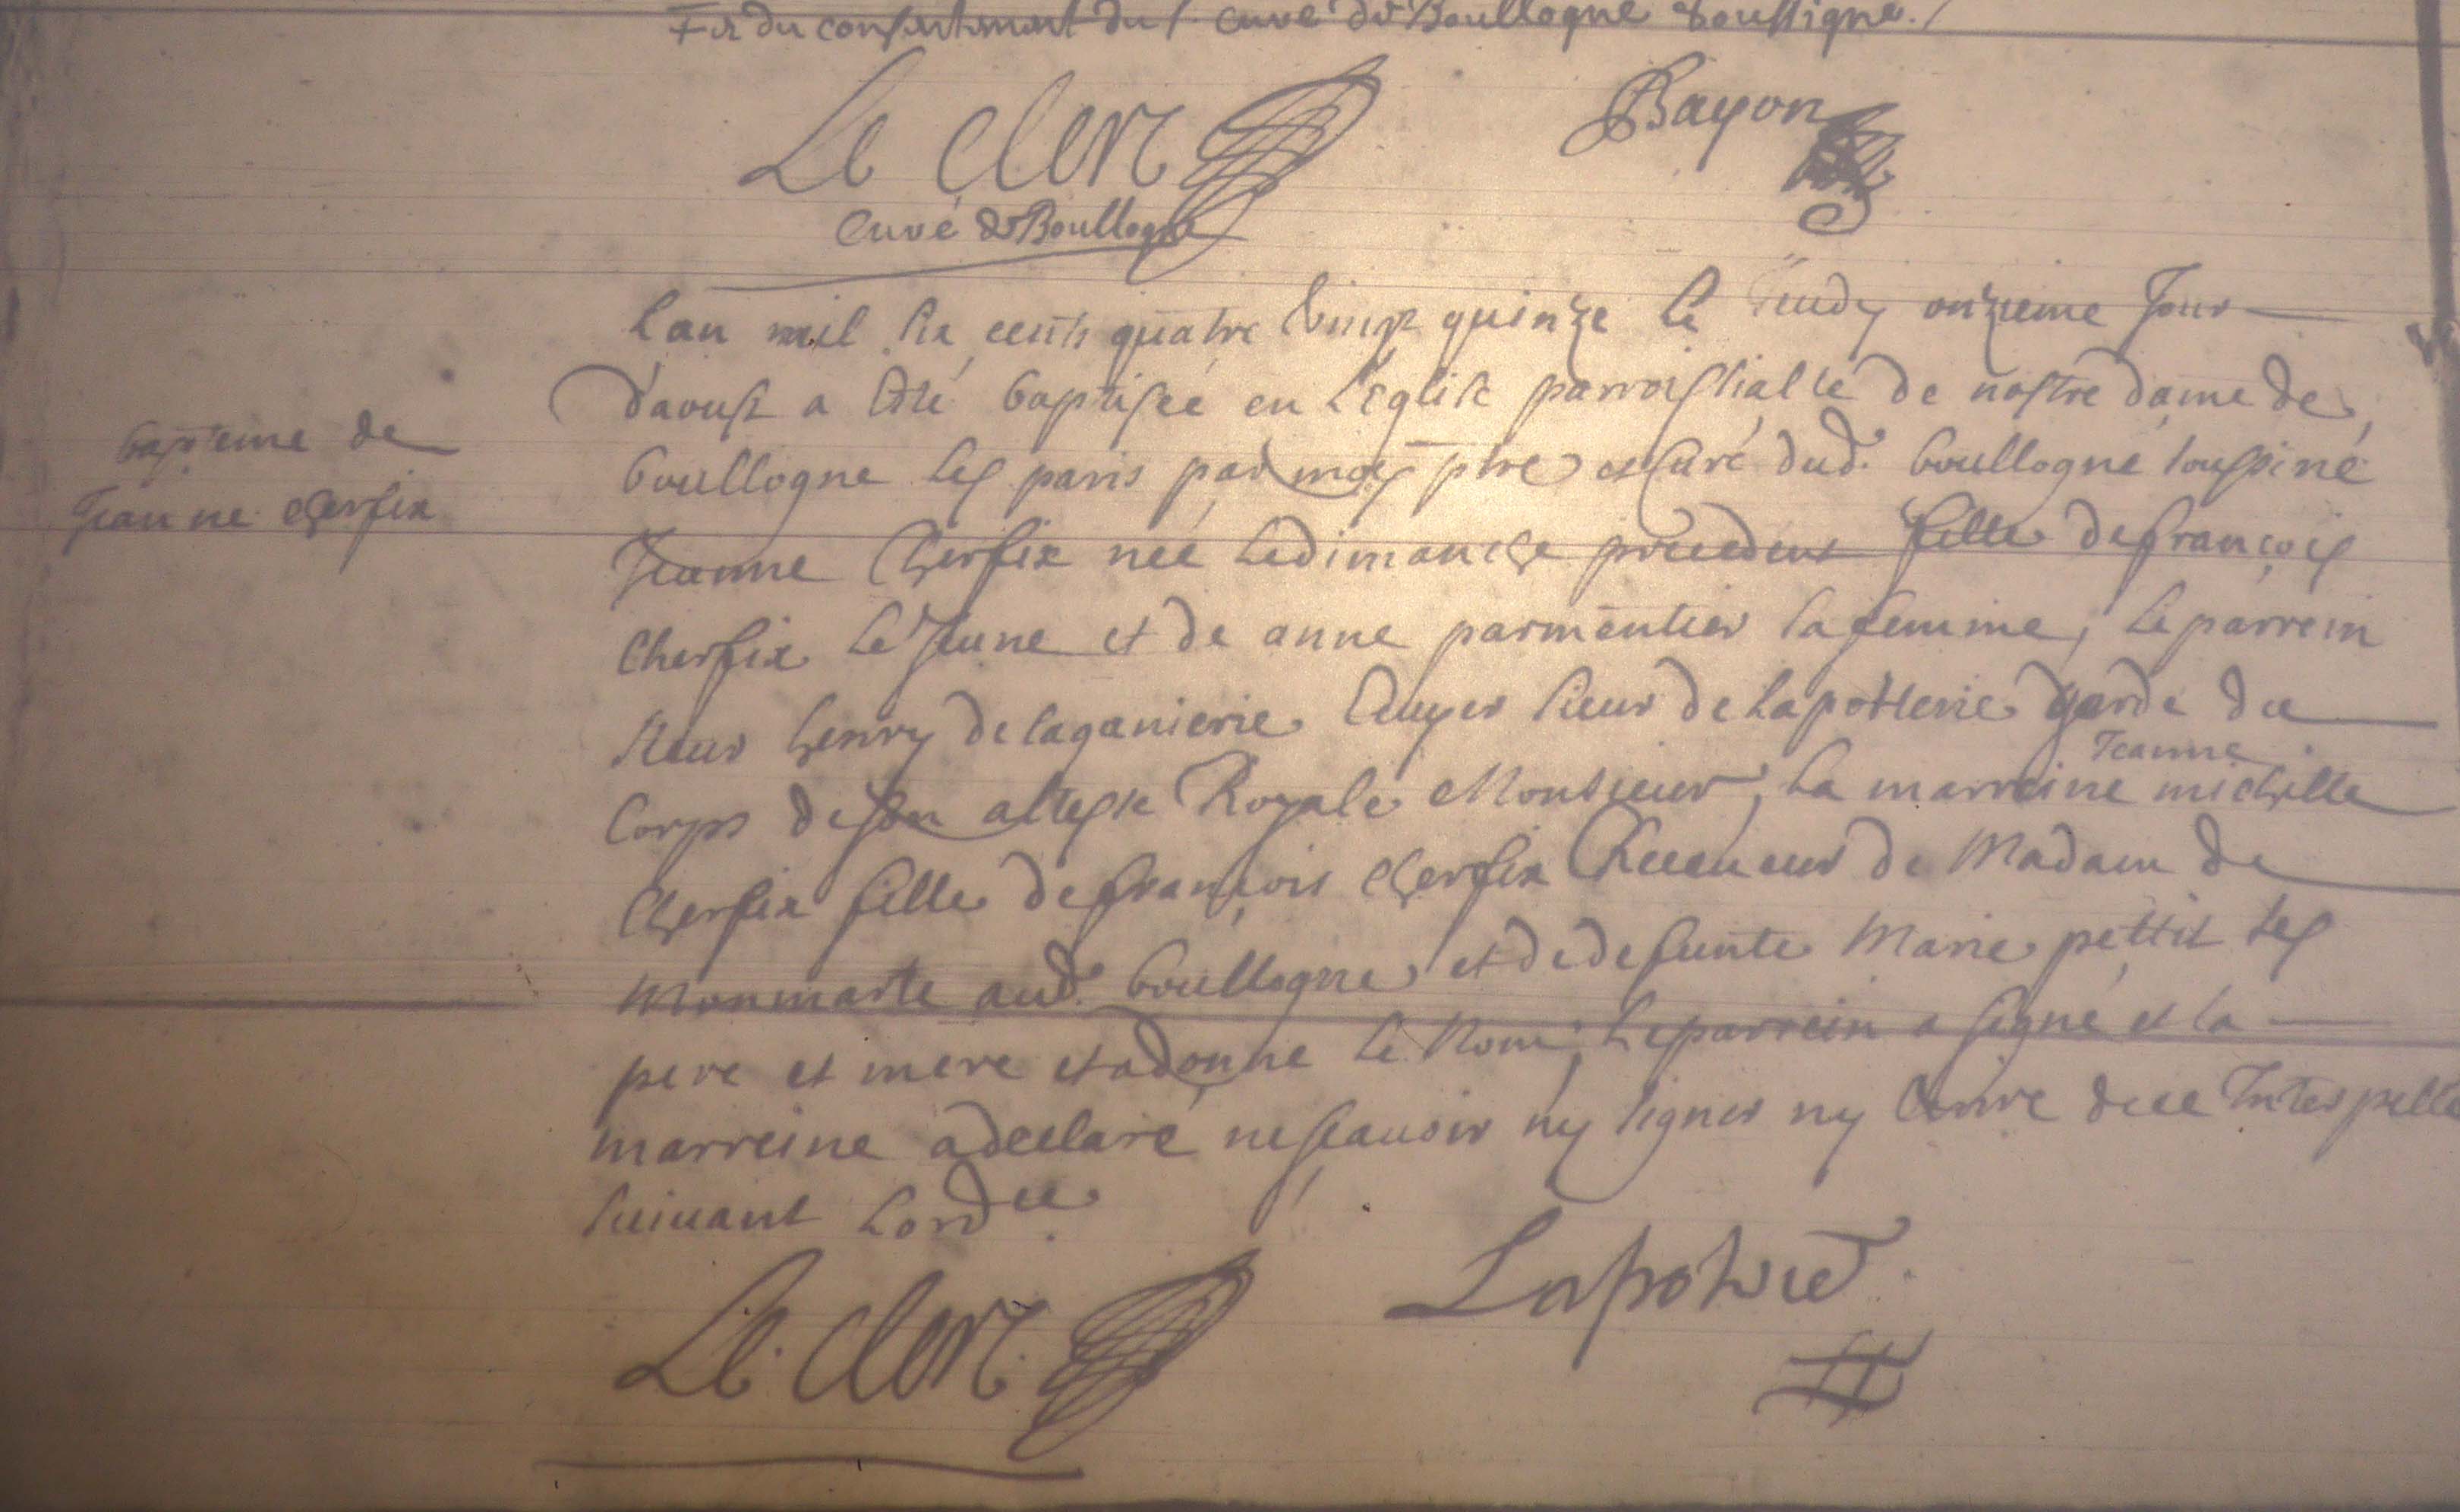 du consentement du s. curé de Boullogne soussigné./
Le Clerc
Bayon
Curé de Boullogne
Lan mil six cents quatre vingt quinze le Jeudy onzieme Jour
d'aoust a Esté baptisée en L'Eglise parroissialle de nostre dame de
boullogne les paris par moy pbre et Curé dud. boullogne soussiné
bapteme de
Jeanne cherfix
Jeanne Cherfix née Ledimanche precedent fille defrançois
Cherfix Le Jeune et de anne parmentier sa femme, Le parrein
sieur henry de laganierie Ecuyer sieur de Lapotterie garde du
Corps de son altesse Royale Monsieur, La marreine Jeanne michelle
Cherfix fille de françois cherfix Receueur de Madam de
Monmarte aud. boullogne et de defunte Marie pettit ses
pere et mere et a donne Le Nom, Le parrein a signé et la
marreine a declaré ne scauoir ny signer ny Ecrire de ce Interpellé
suiuant Lord ce
Le Clerc
Lapotrie